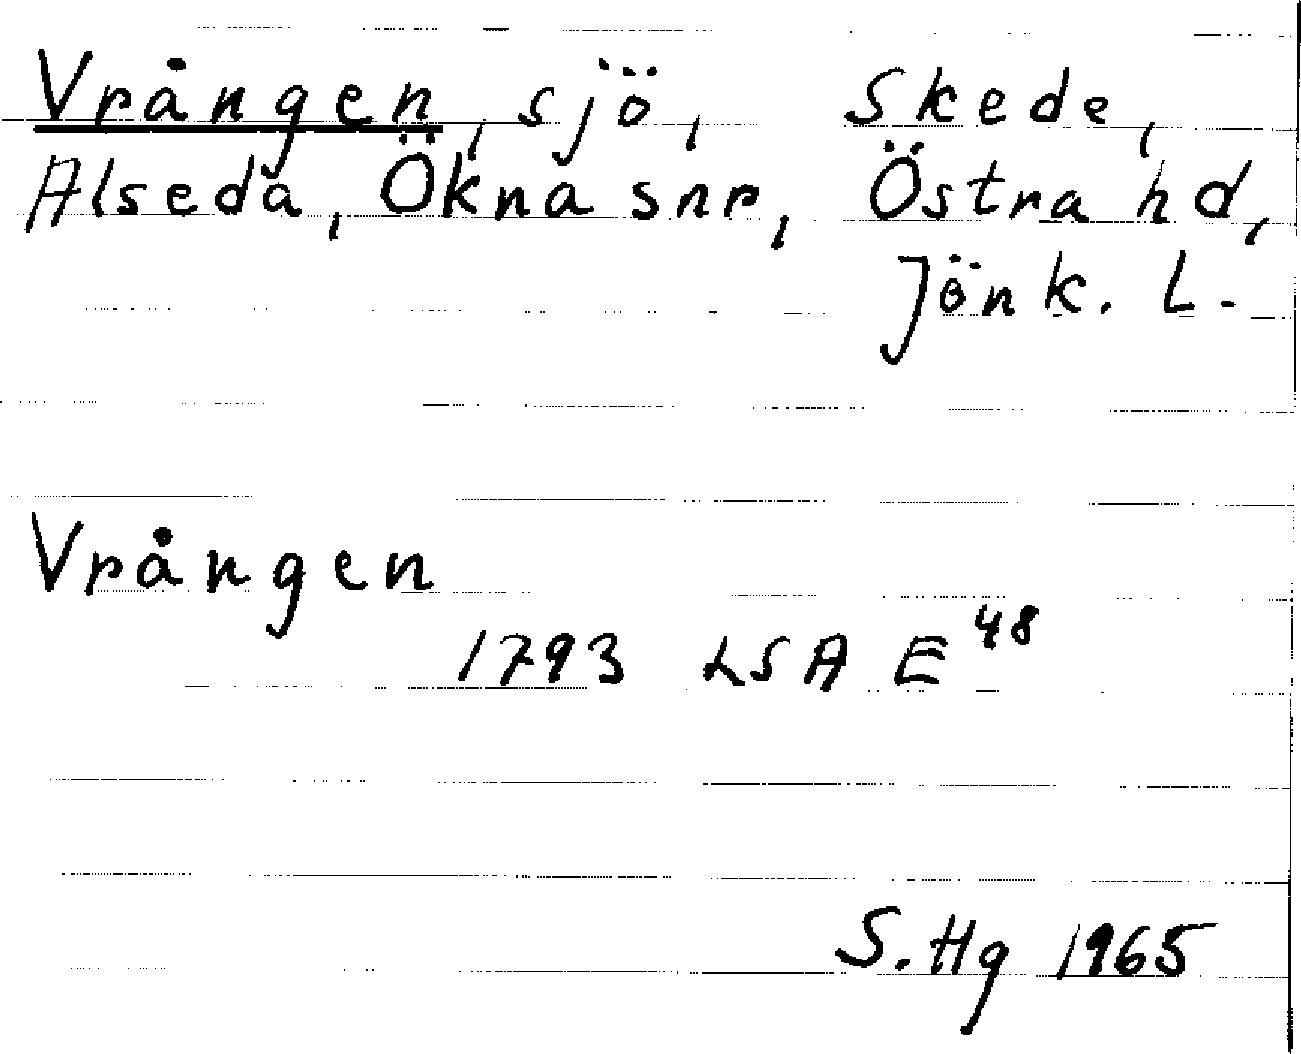 Vrången, sjö, Skede,
Alseda, Ökna snr, Östra hd,
Jönk. L.
Vrången
1793 LSA E 48
S. Hg 1965